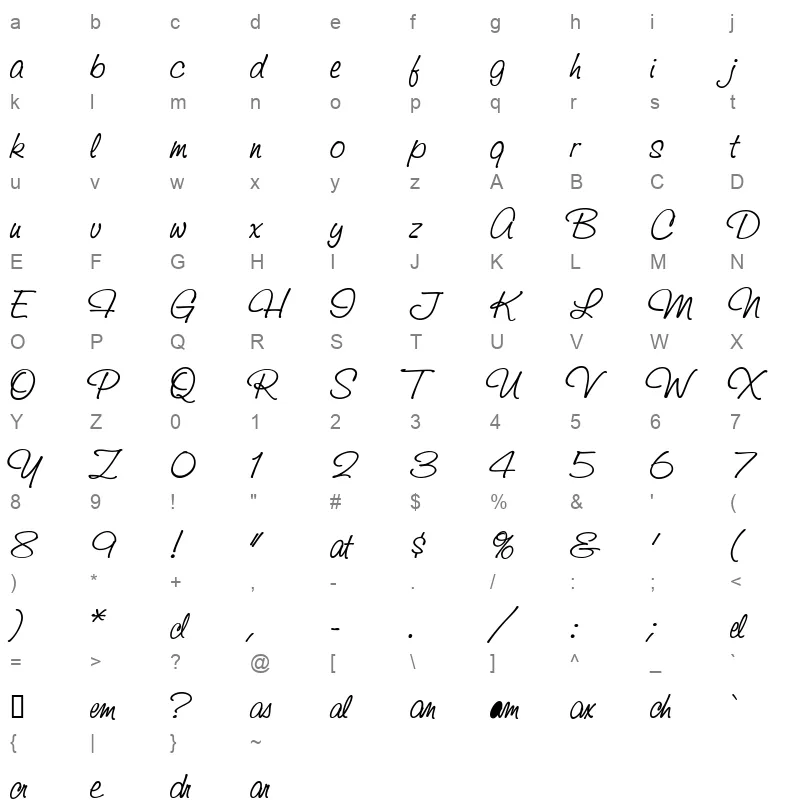 a b c d e f g h i j
a b c d e f g h i j
k l m n o p q r s t
k l m n o p q r s t
u v w x y z A B C D
u v w x y z A B C D
E F G H I J K L M N
E F G H I J K L M N
O P Q R S T U V W X
O P Q R S T U V W X
Y Z 0 1 2 3 4 5 6 7
Y Z 0 1 2 3 4 5 6 7
8 9 ! " # $ % & ' (
8 9 ! " at $ % & ' (
) * + , - . / : ; <
) * cl , - . / : ; el
= > ? @ [ \ ] ^ _ `
em ? as al an am ax ch `
{ | } ~
cr e dr ar